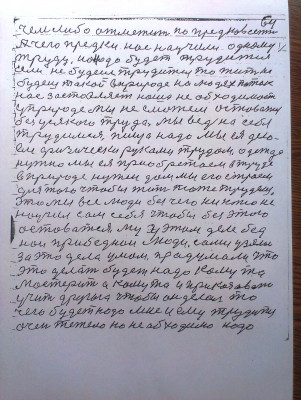 64
чем либо отметит по предков сети
А чего предки нас научили одному
труду, надо будет трудится
если не будем трудится то жить не
будеш такой в природе на людех поток
нас заставляет наша не обходимост
у природе мы не сможем остоватся
без усякого труда, мы вед на себя
трудимся, пища надо мы ея дела
ем физически рукамы трудом, одежда
нужно мы ея приобретаем в труде
в природе нужен дом мы его строем
для того чтобы жит тоже трудем,
это мы все люди без чего никто не
научил сам себя чтобы без этого
остоватся му у этом деле бед
ном прибедном люди, сами узялис
за это дела умом, продумали это
это делат будет надо кому та
мастерит а кому то и приказоват
учит друга чтобы он делал то
чего будет надо мне и ему трудит
очен тежело но необходимо надо